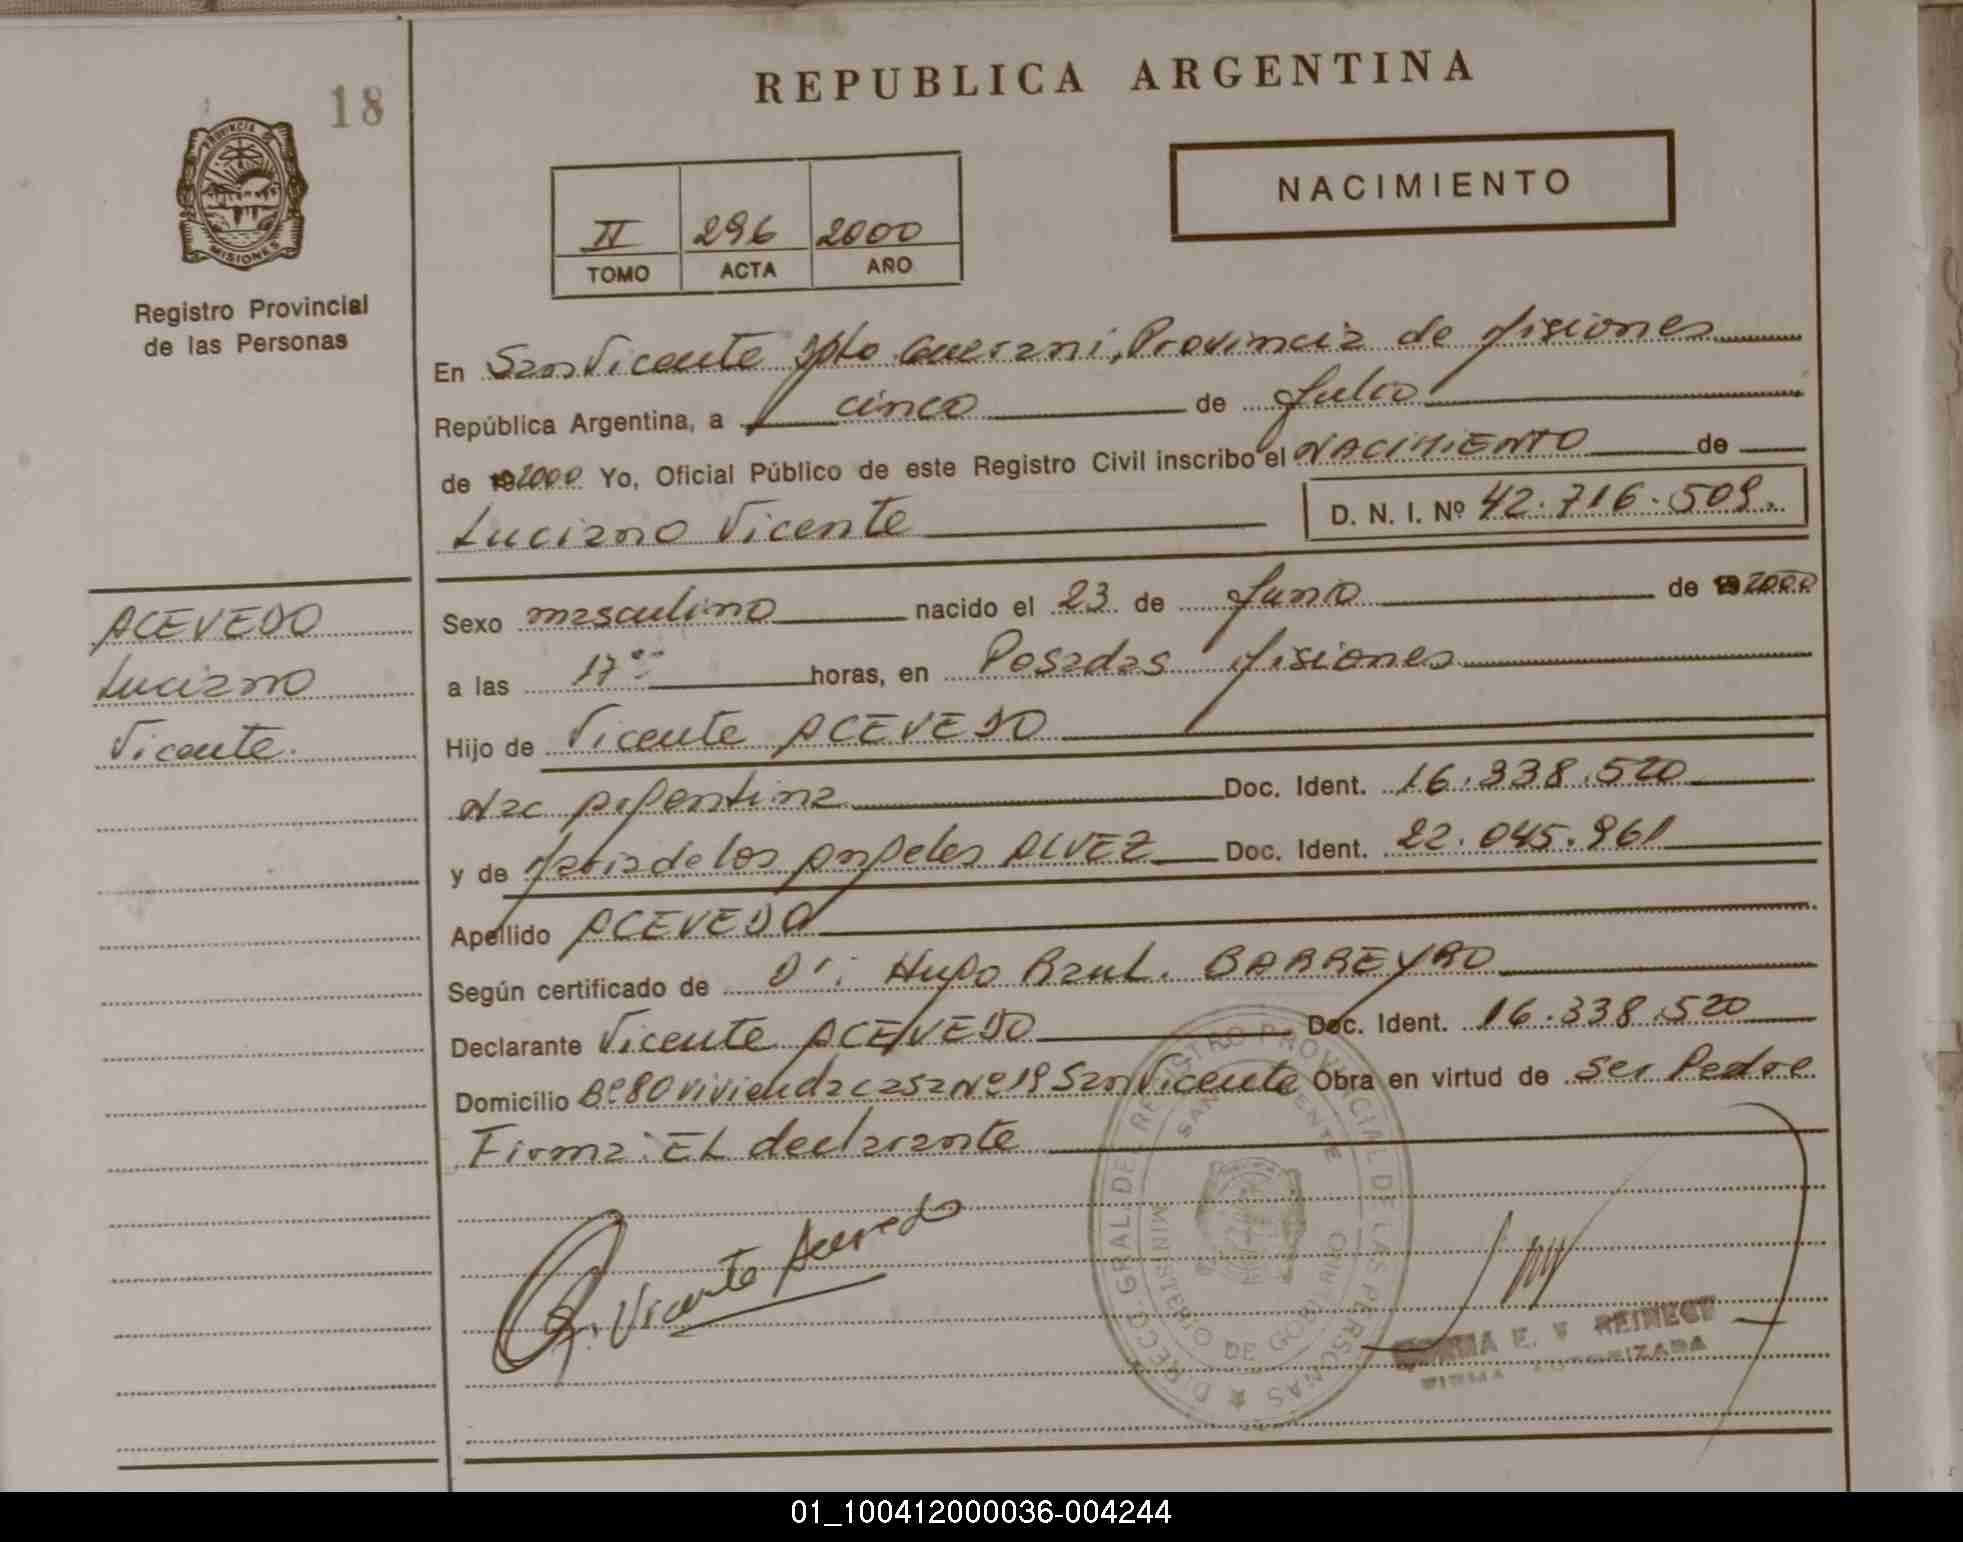 18
REPUBLICA ARGENTINA
PROVINCIA DE MISIONES
NACIMIENTO
II 296 2000
TOMO ACTA AÑO
Registro Provincial
de las Personas
En San Vicente Dpto Guarani, Provincia de Misiones
República Argentina, a cinco de Julio
de 2000 Yo, Oficial Público de este Registro Civil inscribo el NACIMIENTO de
Luciano Vicente D. N. I. Nº 42.716.509.
ACEVEDO
Luciano
Vicente.
Sexo masculino nacido el 23 de Junio de 2000
a las 17 horas, en Posadas Misiones
Hijo de Vicente ACEVEDO
Nac Argentina Doc. Ident. 16.338.520
y de Maria de los Angeles ALVEZ Doc. Ident. 22.045.961
Apellido ACEVEDO
Según certificado de Dr: Hugo Raul. BARREYRO
Declarante Vicente ACEVEDO Doc. Ident. 16.338.520
Domicilio Bº 80 vivienda casa Nº 19 San Vicente Obra en virtud de ser Padre
Firma: EL declarante
Vicente Acevedo
DIRECC. GRAL. DEL REGISTRO PROVINCIAL DE LAS PERSONAS
SAN VICENTE
MINISTERIO DE GOBIERNO
E. V REINECK
FIRMA AUTORIZADA
01_100412000036-004244